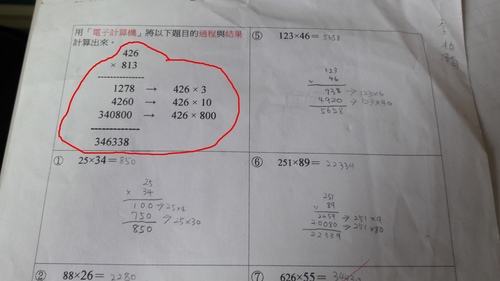 用「電子計算機」將以下題目的過程與結果
計算出來。
426
× 813
1278 → 426 × 3
4260 → 426 × 10
340800 → 426 × 800
346338
① 25×34= 850
25
× 34
100 → 25×4
750 → 25×30
850
② 88×26= 2280
⑤ 123×46= 5658
123
× 46
738 → 123×6
4920 → 123×40
5658
⑥ 251×89= 22339
251
× 89
2259 → 251×9
20080 → 251×80
22339
⑦ 626×55=